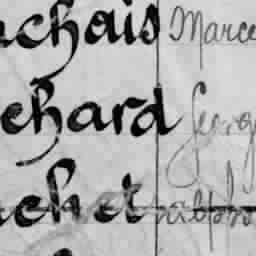 chais Marce
chard Georg
chet